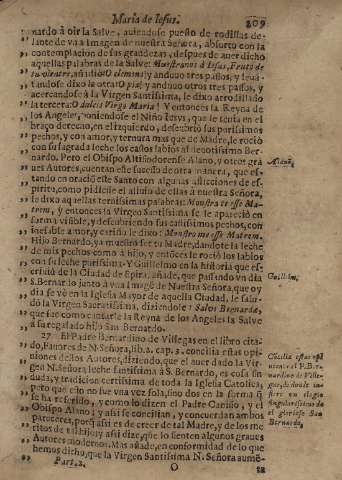 Maria de Iesus. 209
„ nardo à oir la Salve, auiendose puesto de rodillas de-
„ lante de vna Imagen de nuestra Señora, absorto con la
„ contemplacion de sus grandezas, despues de auer dicho
„ aquellas palabras de la Salve: Muestranos à Iesus, Fruto de
„ tu vientre, añadiò O clemens! y anduuo tres passos, y leuã-
„ tandose dixo la otra: O pia! y anduuo otros tres passos, y
„ acercandose à la Virgen Santissima, le dixo arrodillado
„ la tercera: O dulcis Virgo Maria! Y entonces la Reyna de
„ los Angeles, poniendose el Niño Iesus, que le tenia en el
„ braço derecho, en el izquierdo, descubriò sus purissimos
„ pechos, y con amor, y ternura mas que de Madre, le rociò
„ con su sagrada leche los castos labios al deuotissimo Ber-
„ nardo. Pero el Obispo Altisiodorense Alano, y otros gra
„ ues Autores, cuentan este sucesso de otra manera, que es-
„ tando en oraciõ este Santo con algunas aflicciones de es-
„ piritu, como pidiesse el aliuio de ellas à nuestra Señora,
„ le dixo aquellas ternissimas palabras: Monstra te esse Ma-
„ trem, y entonces la Virgen Santissima se le apareciò en
„ forma visible, y descubriendo sus castissimos pechos, con
„ inefable amor, y cariño le dixo: Monstro me esse Matrem.
„ Hijo Bernardo, ya muestro ser tu Madre, dandote la leche
„ de mis pechos como à hijo, y entõces le rociò los labios
„ con su leche purissima. Y Guillelmo en la historia que es-
„ criuiò de la Ciudad de Spira, añade, que passando vn dia
„ S. Bernardo junto à vna Imagẽ de Nuestra Señora, que oy
„ dia se vè en la Iglesia Mayor de aquella Ciudad, le salu-
„ dò la Virgen Sacratissima, diziendole: Salve Bernarde,
„ que fue como cantarle la Reyna de los Angeles la Salve
„ à su regalado hijo San Bernardo.
„ 27 El Padre Bernardino de Villegas en el libro cita-
„ do, Fauores de N. Señora, lib. 2. cap. 3. concilia estas opi-
„ niones de los Autores, diziendo, que el auer dado la Vir-
„ gen N. Señora leche santissima à S. Bernardo, es cosa sin
„ duda, y tradicion certissima de toda la Iglesia Catolica,
„ pero que esto no fue vna vez sola, sino dos en la forma q̃
„ se ha referido, y como lo dizen el Padre Cariño, y el
„ Obispo Alano; y assi se concilian, y concuerdan ambos
„ pareceres, porq̃ assi es de creer de tal Madre, y de los me
„ ritos de tal hijo; y assi dize, que lo sienten algunos graues
„ Autores modernos. Mas añade, en conformidad de lo que
„ hemos dicho, que la Virgen Santissima N. Señora sumè-
Part. 2. O
Alano.
Guillelm.
Cõcilia estas opi
niones el P. Ber-
nardino de Ville-
gas, de donde in-
fiere en elogio
singularissimo de
el glorioso San
Bernardo.